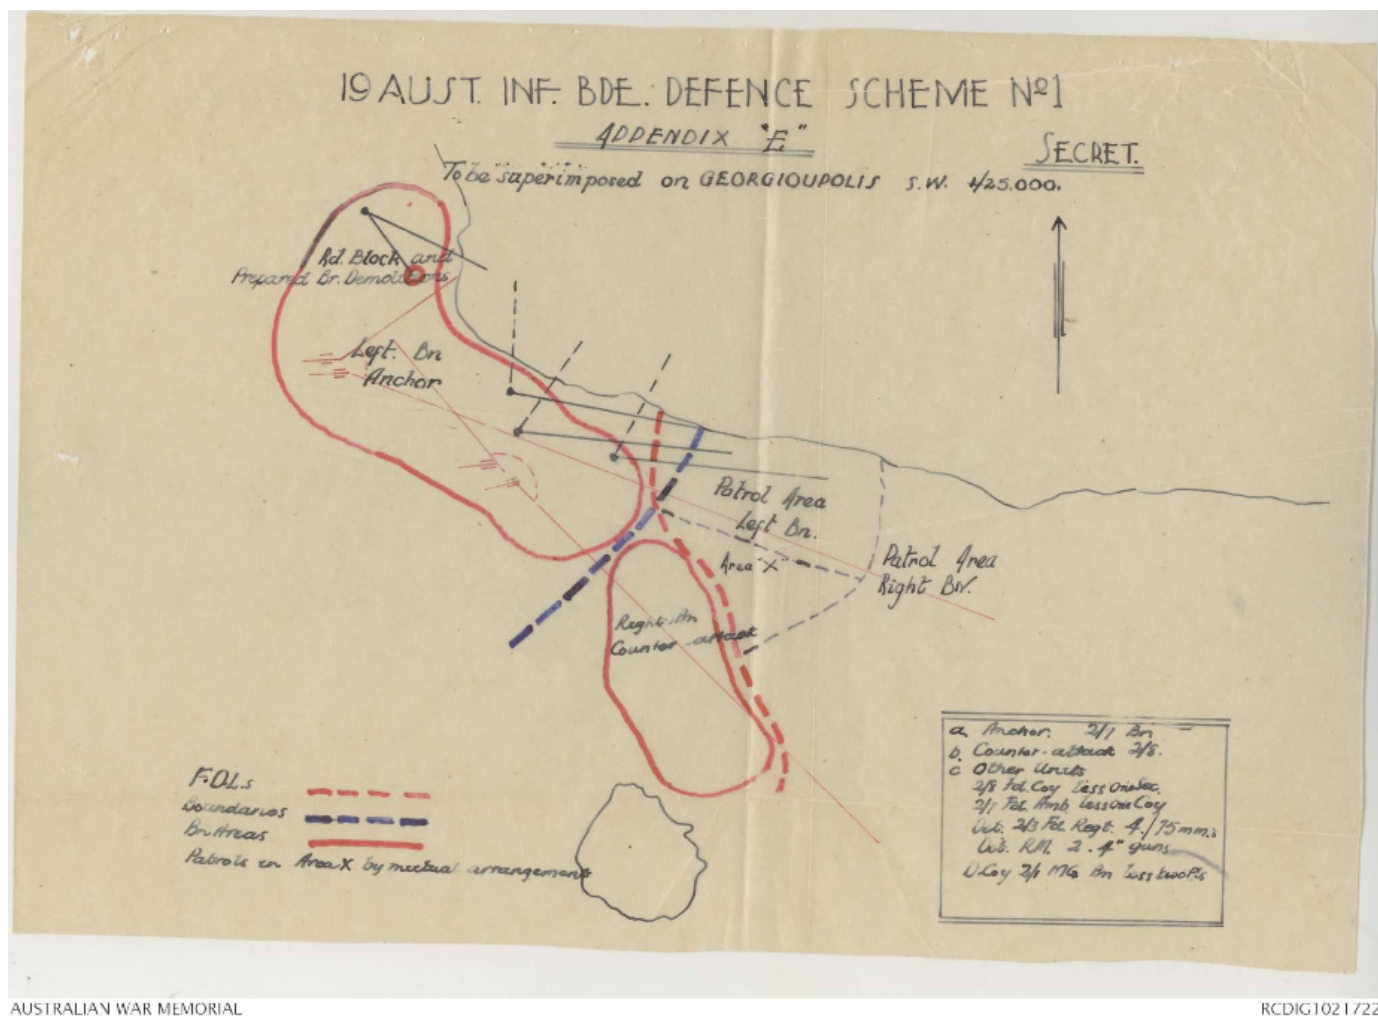 19 AUST. INF. BDE. DEFENCE SCHEME Nº1
APPENDIX "E"
SECRET.
To be superimposed on GEORGIOUPOLIS S.W. 1/25.000.
Rd. Block and
Prepared Br. Demolitions
Left. Bn
Anchor
Patrol Area
Left Bn.
Area "X"
Patrol Area
Right Bn.
Right Bn
Counter-attack
F.D.L.s
Boundaries
Bn Areas
Patrols in Area X by mutual arrangement
a. Anchor. 2/7 Bn
b. Counter-attack 2/8.
c Other Units
2/8 Fd. Coy less one Sec.
2/7 Fd. Amb. less one Coy
Det. 2/3 Fd. Regt. 4/75 mm.s
Det. R.M. 2. 4" guns
D Coy 2/1 MG Bn less two Pls
AUSTRALIAN WAR MEMORIAL
RCDIG1021722